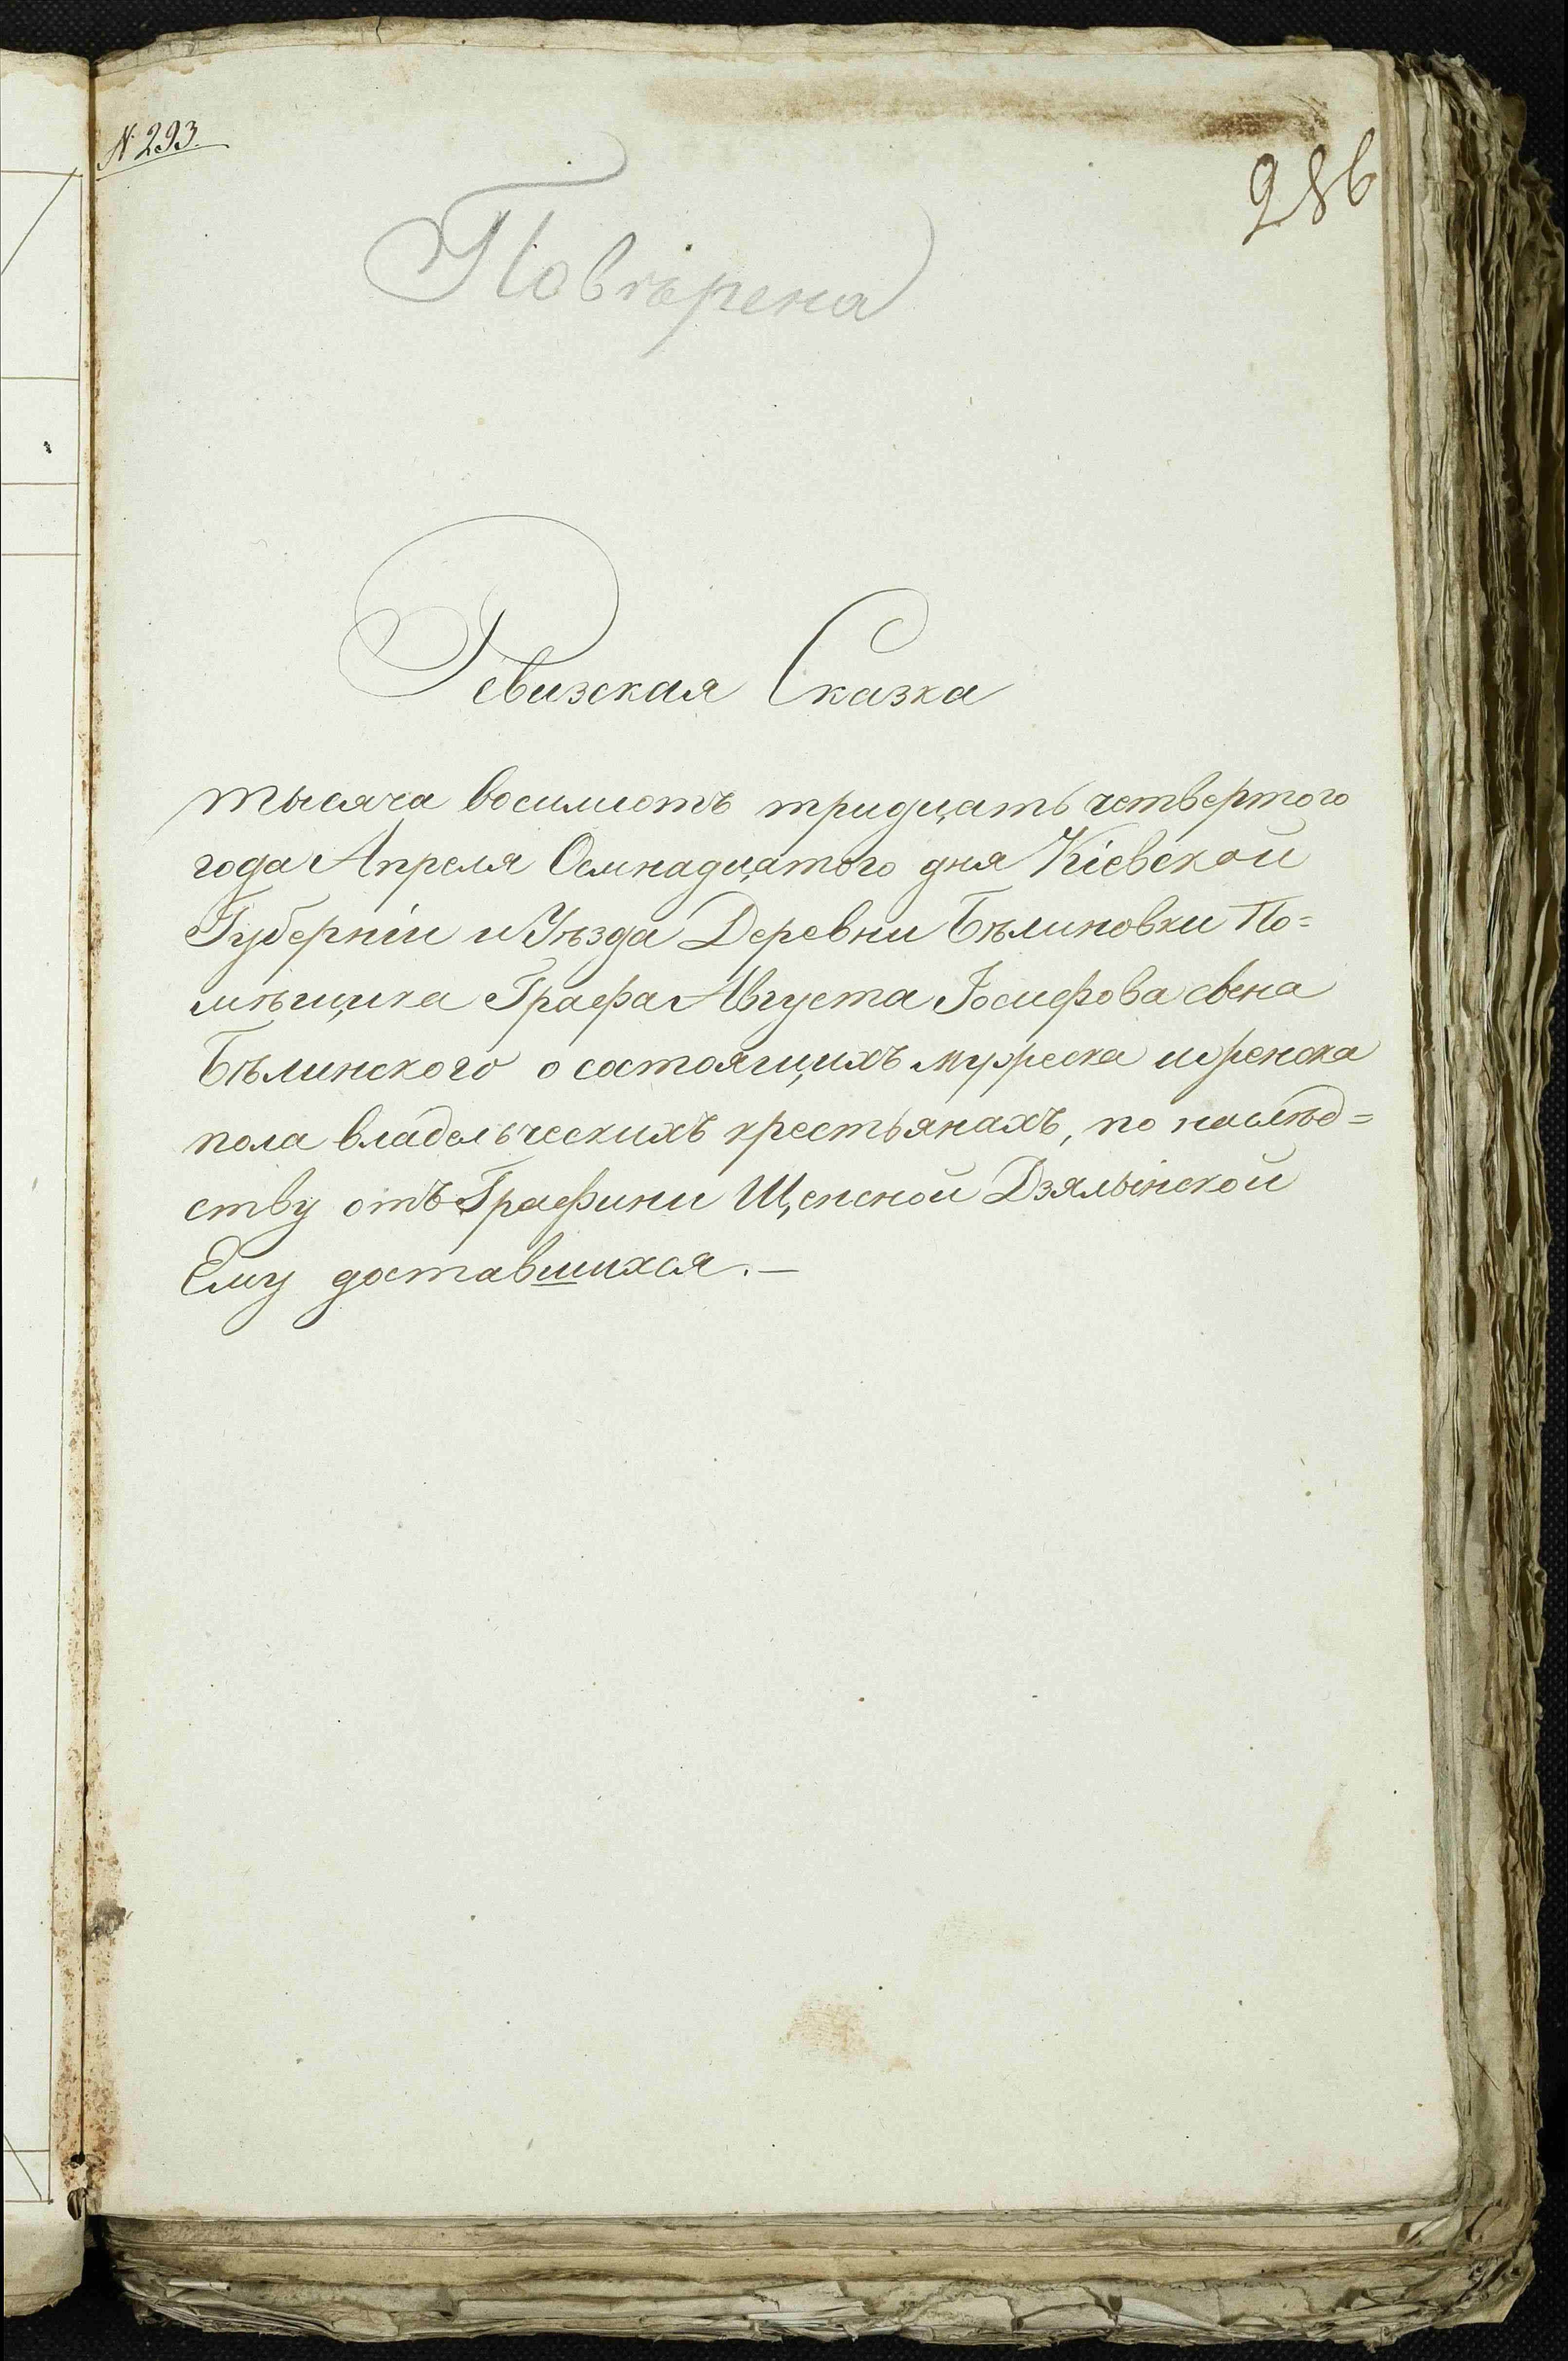 N. 293.
286
Повѣрена
Ревизская Сказка
тысяча восимсотъ тридцать четвертого
года Апреля Осмнадцатого дня Кіевской
Губерніи и Уѣзда Деревни Бѣлиновки По=
мѣщика Графа Августа Іосифова сына
Бѣлинского о состоящихъ мужеска и женска
пола владельческихъ крестьянахъ, по наслѣд=
ству отъ Графини Щенсной Дзялынской
Ему доставшихся.—